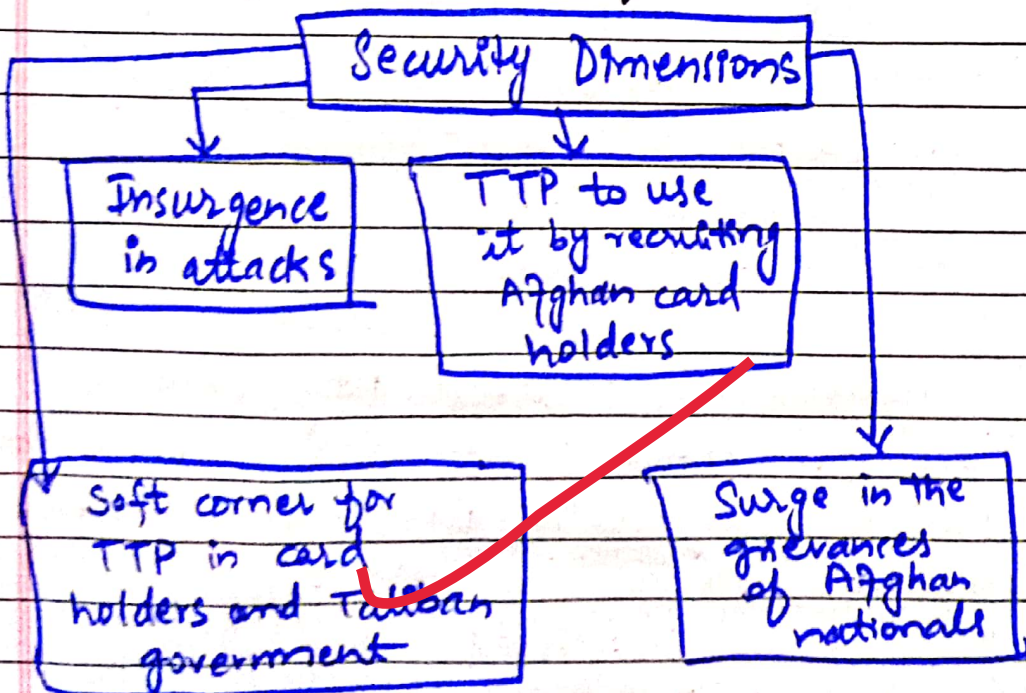 Security Dimensions
Insurgence
in attacks
TTP to use
it by recruiting
Afghan card
holders
Soft corner for
TTP in card
holders and Taliban
government
Surge in the
grievances
of Afghan
nationals